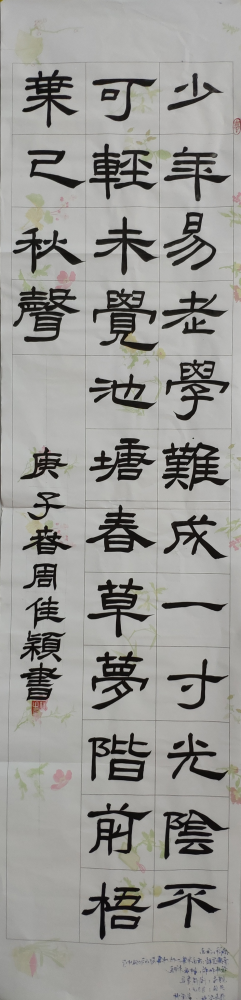 少年易老學難成一寸光陰不
可輕未覺池塘春草夢階前梧
葉已秋聲
庚子春周佳穎書